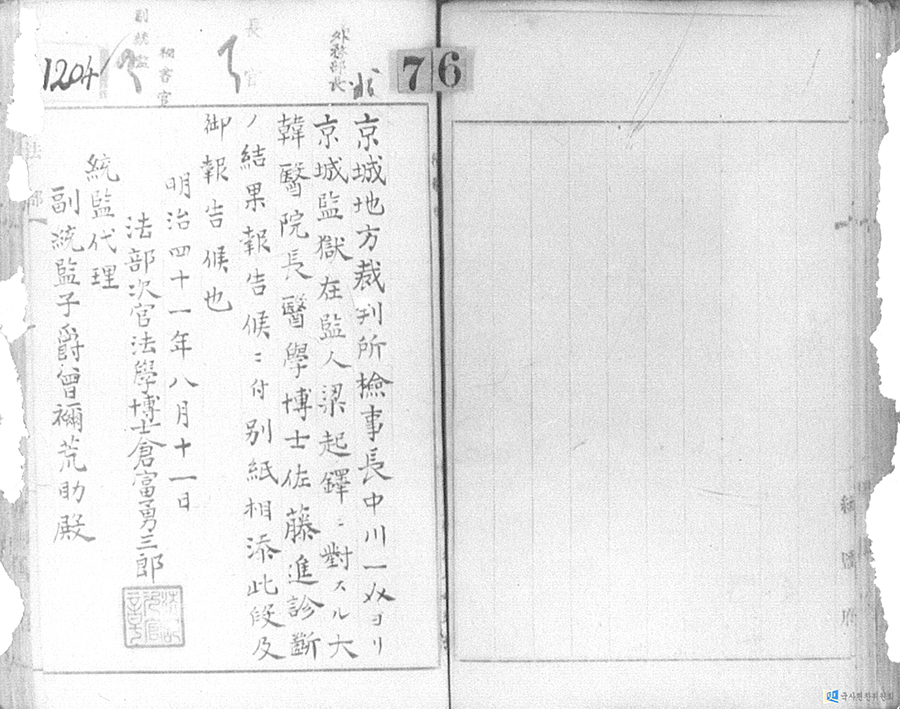 1204
副統監
秘書官
長官
外務部長
76
京城地方裁判所檢事長中川一介ヨリ
京城監獄在監人梁起鐸ニ對スル大
韓醫院長醫學博士佐藤進診斷
ノ結果報告候ニ付別紙相添此段及
御報告候也
明治四十一年八月十一日
法部次官法學博士倉富勇三郎
統監代理
副統監子爵曾禰荒助殿
法部
統監府
국사편찬위원회